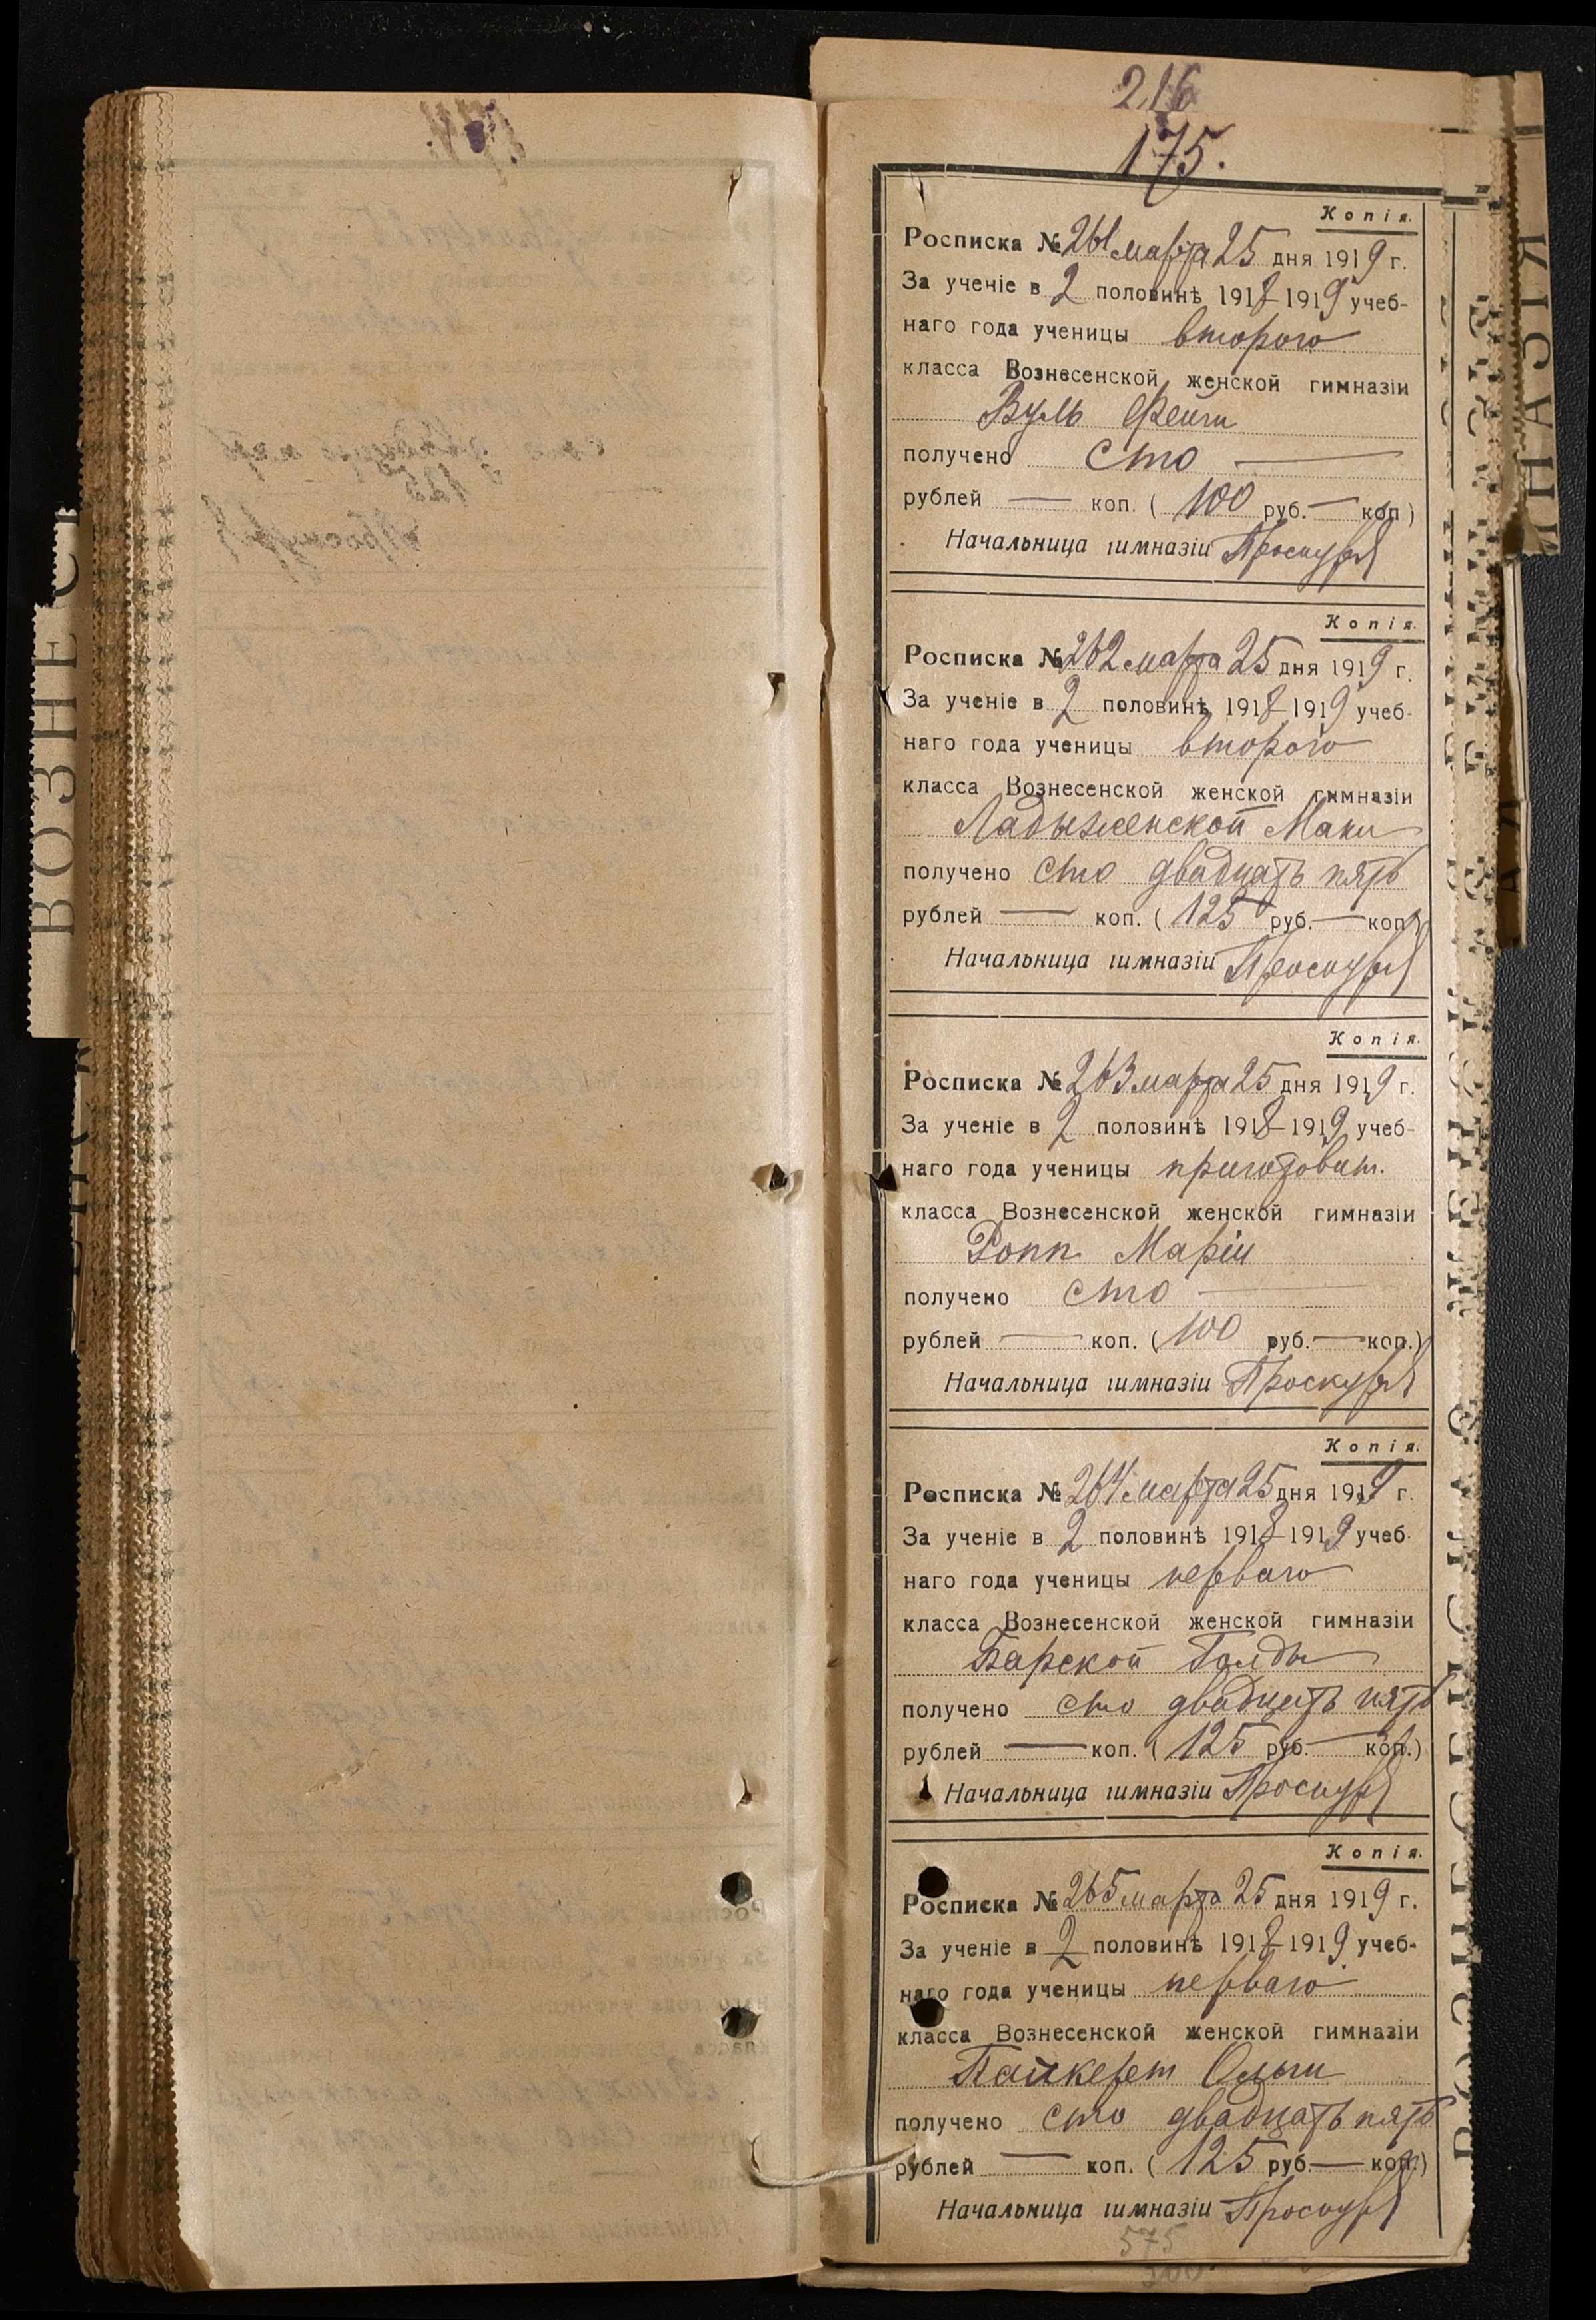 216
175.
Копія.
Росписка № 261 марта 25 дня 1919 г.
За ученіе в 2 половинѣ 1918-1919 учеб-
наго года ученицы второго
класса Вознесенской женской гимназіи
Вуль Фейги
получено сто —
рублей — коп. ( 100 руб. — коп )
Начальница гимназіи Проскуря
Копія.
Росписка № 262 марта 25 дня 1919 г.
За ученіе в 2 половинѣ 1918-1919 учеб-
наго года ученицы второго
класса Вознесенской женской гимназіи
Ладыженской Мани
получено сто двадцать пять
рублей — коп. ( 125 руб. — коп )
Начальница гимназіи Проскуря
Копія.
Росписка № 263 марта 25 дня 1919 г.
За ученіе в 2 половинѣ 1918-1919 учеб-
наго года ученицы приготовит.
класса Вознесенской женской гимназіи
Ропп Маріи
получено сто —
рублей — коп. ( 100 руб. — коп.)
Начальница гимназіи Проскуря
Копія.
Росписка № 264 марта 25 дня 1919 г.
За ученіе в 2 половинѣ 1918-1919 учеб-
наго года ученицы перваго
класса Вознесенской женской гимназіи
Барской Голды
получено сто двадцать пять
рублей — коп. ( 125 руб. — коп.)
Начальница гимназіи Проскуря
Копія.
Росписка № 265 марта 25 дня 1919 г.
За ученіе в 2 половинѣ 1918-1919 учеб-
наго года ученицы перваго
класса Вознесенской женской гимназіи
Байкерт Ольги
получено сто двадцать пять
рублей — коп. ( 125 руб. — коп.)
Начальница гимназіи Проскуря
575
ВОЗНЕС